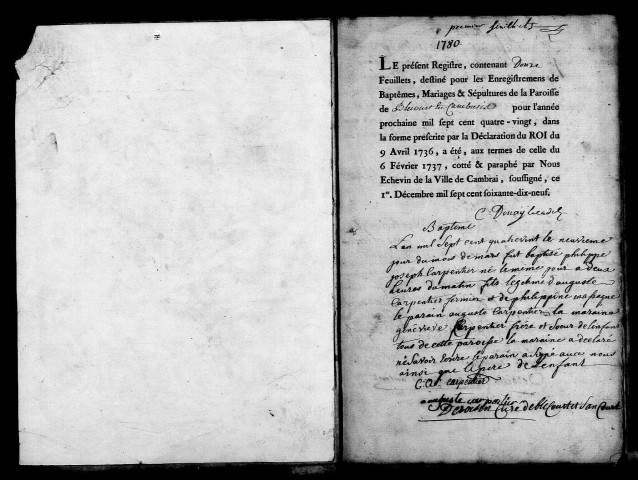 premier feuillet
1780.
LE présent Registre, contenant Douze
Feuillets, destiné pour les Enregistremens de
Baptêmes, Mariages & Sépultures de la Paroisse
de Blecourt en Cambresis pour l'année
prochaine mil sept cent quatre-vingt, dans
la forme prescrite par la Déclaration du ROI du
9 Avril 1736, a été, aux termes de celle du
6 Février 1737, cotté & paraphé par Nous
Echevin de la Ville de Cambrai, soussigné, ce
1er. Décembre mil sept cent soixante-dix-neuf.
C. Douay
Bapteme
L'an mil sept cent quatrevint le neuvieme
jour du mois de mars fut baptisé philippe
joseph Carpentier né le meme jour a deux
heures du matin fils legitime d'auguste
Carpentier fermier et de philippine
le parain auguste Carpentier la maraine
genevieve Carpentier frere et soeur de l'enfant
tous de cette paroisse la maraine a declaré
ne savoir ecrire le parain a signé avec nous
ainsi que le pere de l'enfant
carpentier
auguste carpentier
Curé de blecourt et Sancourt